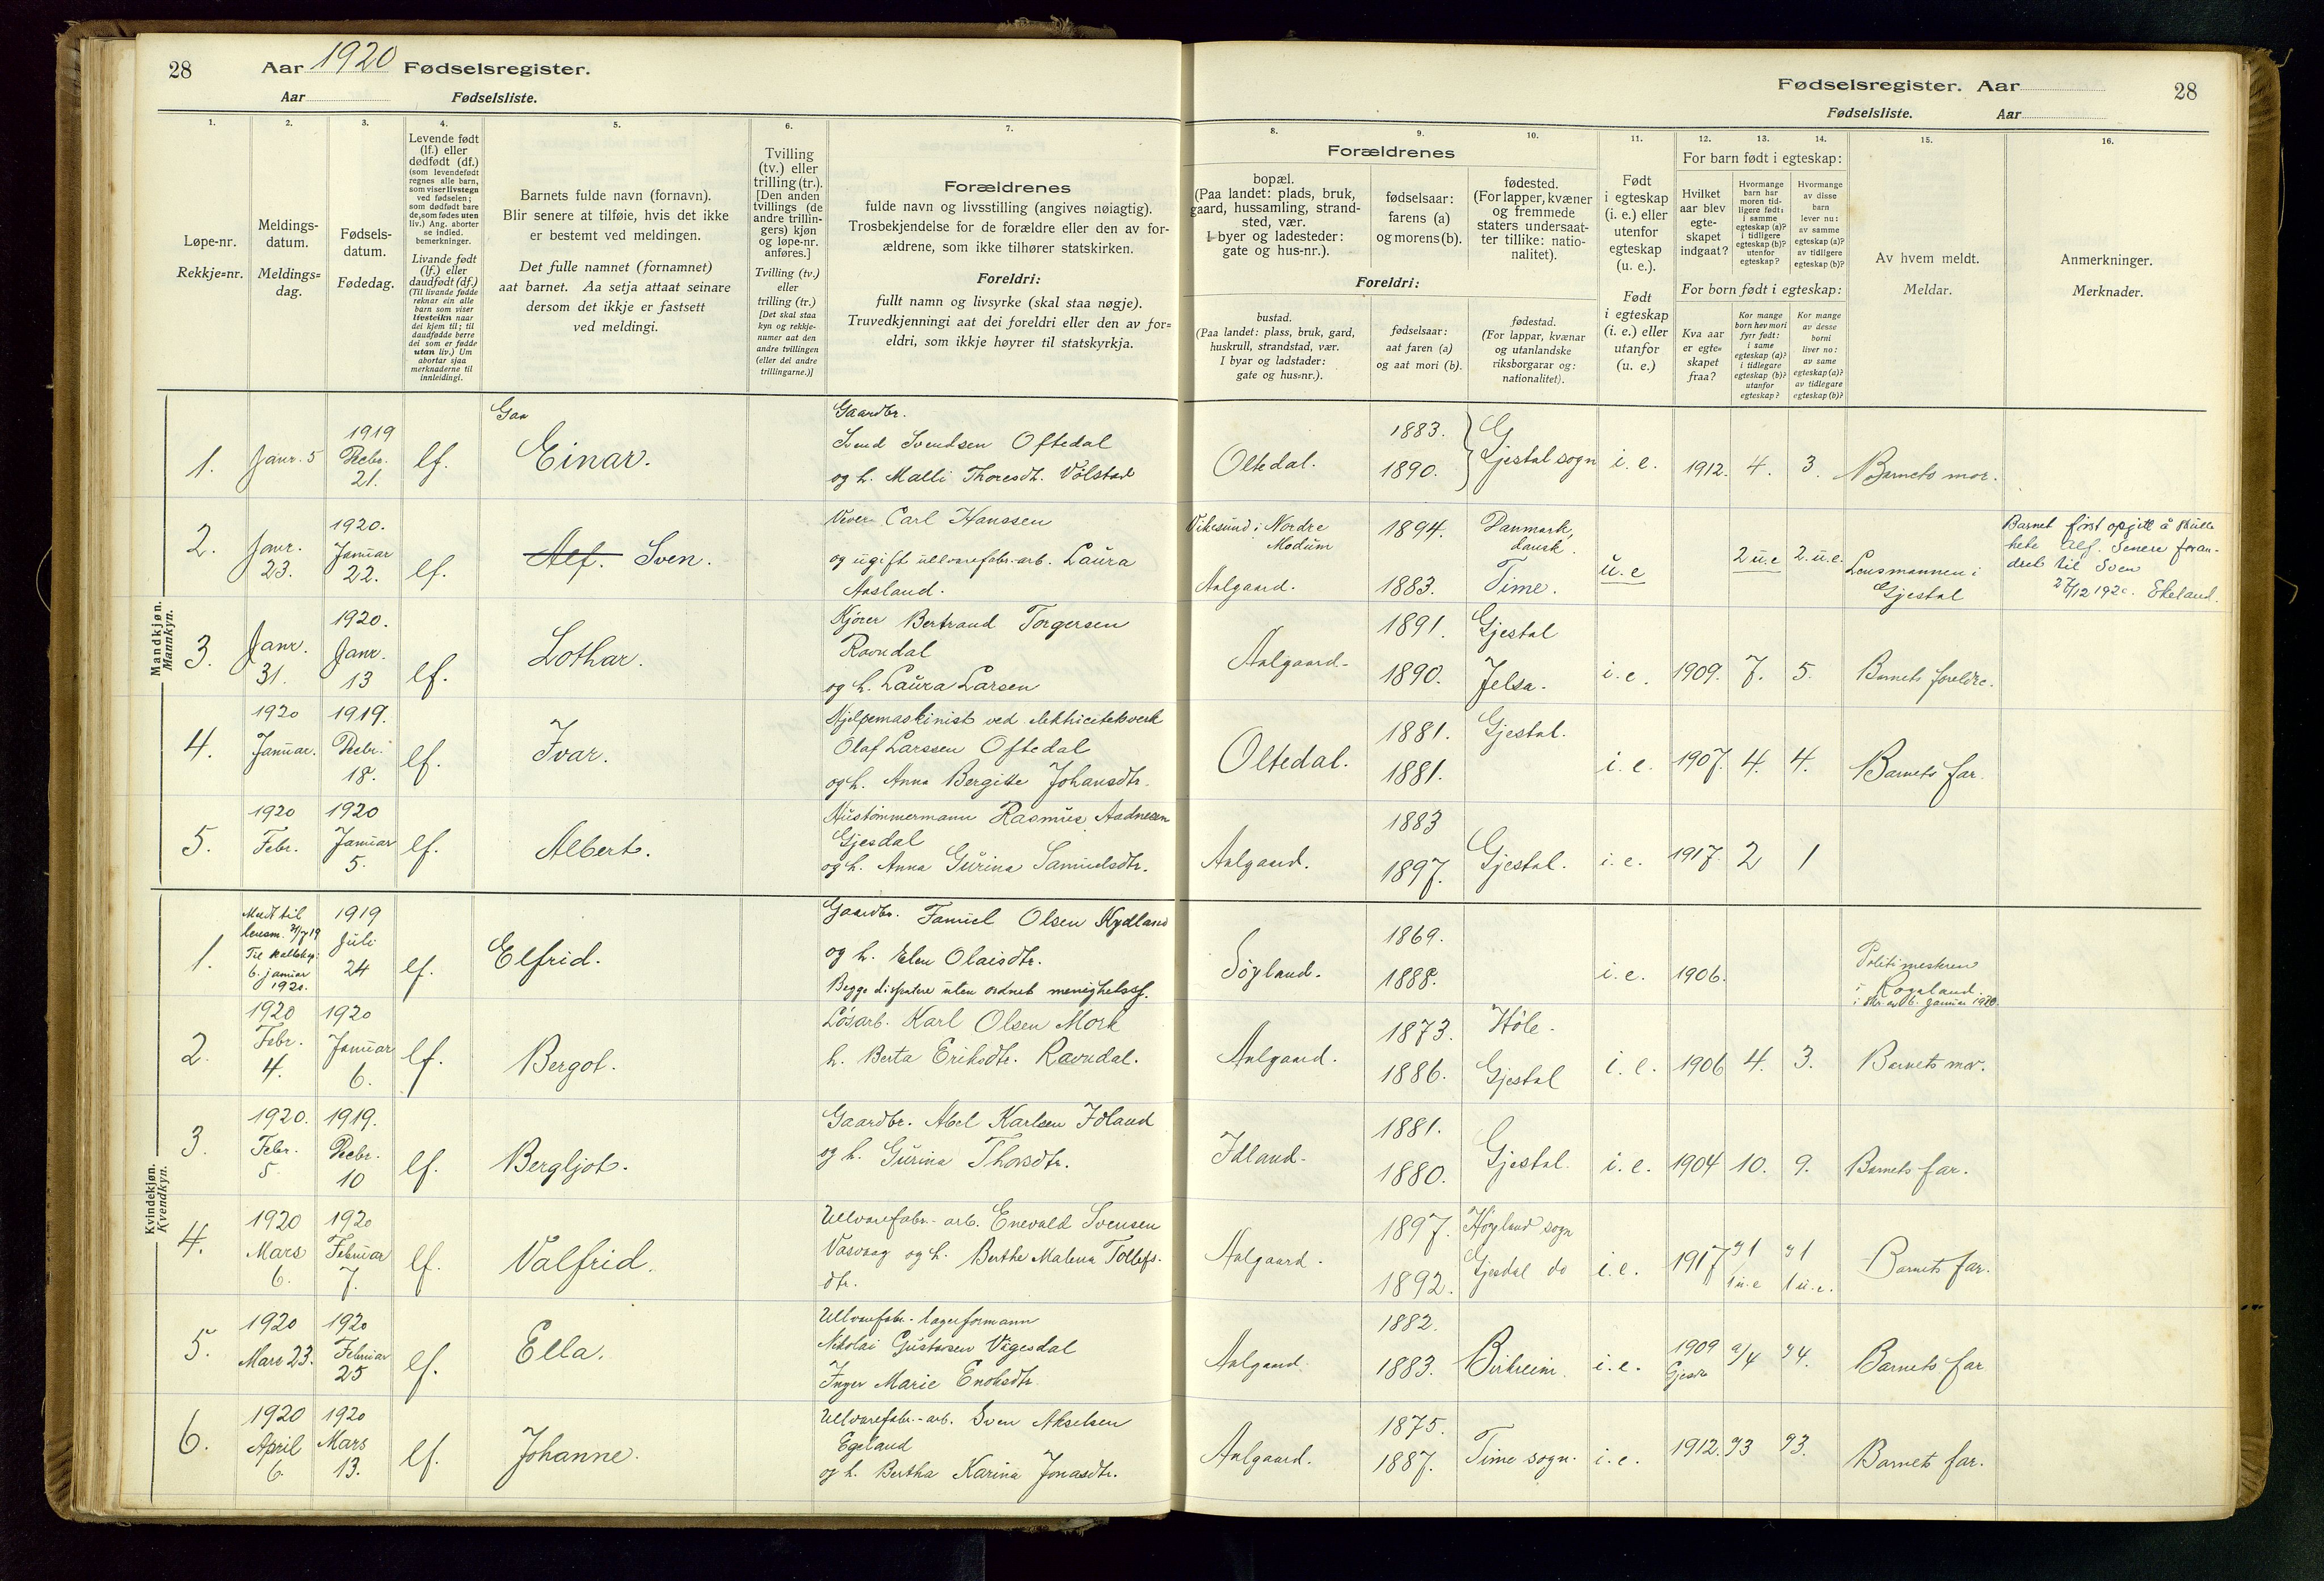 28 Aar 1920 Fødselsregister.
Aar Fødselsliste.
Fødselsregister. Aar 28
Fødselsliste. Aar
1. 2. 3. 4. 5. 6. 7. 8. 9. 10. 11. 12. 13. 14. 15. 16.
Løpe-nr.
Rekkje=nr.
Meldings-
datum.
Meldings=
dag.
Fødsels-
datum.
Fødedag.
Levende født
(lf.) eller
dødfødt (df.)
(som levendefødt
regnes alle barn,
som viser livstegn
ved fødselen;
som dødfødt bare
de, som fødes uten
liv.) Ang. aborter
se indled.
bemerkninger.
Livande født
(lf.) eller
daudfødt (df.)
(Til livande fødde
reknar ein alle
barn som viser
livsteikn naar
dei kjem til; til
daudfødde berre
dei som er fødde
utan liv.) Um
abortar sjaa
merknaderne til
innleidingi.
Barnets fulde navn (fornavn).
Blir senere at tilføie, hvis det ikke
er bestemt ved meldingen.
Det fulle namnet (fornamnet)
aat barnet. Aa setja attaat seinare
dersom det ikkje er fastsett
ved meldingi.
Tvilling
(tv.) eller
trilling (tr.).
[Den anden
tvillings (de
andre trillin-
gers) kjøn
og løpe-nr.
anføres.]
Tvilling (tv.)
eller
trilling (tr.)
[Det skal staa
kyn og rekkje-
numer aat den
andre tvillingen
(eller dei andre
trillingarne.)]
Forældrenes
fulde navn og livsstilling (angives nøiagtig).
Trosbekjendelse for de forældre eller den av for-
ældrene, som ikke tilhører statskirken.
Foreldri:
fullt namn og livsyrke (skal staa nøgje).
Truvedkjenningi aat dei foreldri eller den av for=
eldri, som ikkje høyrer til statskyrkja.
Forældrenes
bopæl.
(Paa landet: plads, bruk,
gaard, hussamling, strand-
sted, vær.
I byer og ladesteder:
gate og hus-nr.).
fødselsaar:
farens (a)
og morens (b).
fødested.
(For lapper, kvæner
og fremmede
staters undersaat-
ter tillike: natio-
nalitet).
Foreldri:
bustad.
(Paa landet: plass, bruk, gard,
huskrull, strandstad, vær.
I byar og ladstader:
gate og hus=nr.).
fødselsaar:
aat faren (a)
og aat mori (b).
fødestad.
(For lappar, kvænar
og utanlandske
riksborgarar og:
nationalitet).
Født
i egteskap
(i. e.) eller
utenfor
egteskap
(u. e.).
Født
i egteskap
(i. e.) eller
utanfor
(u. e.)
For barn født i egteskap:
Hvilket
aar blev
egte-
skapet
indgaat?
Hvormange
barn har
moren tid-
ligere født:
i samme
egteskap (a)?
i tidligere
egteskap (b)?
utenfor
egteskap?
Hvormange
av disse
barn
lever nu:
av samme
egteskap (a)?
av tidligere
egteskap (b)?
For born født i egteskap:
Kva aar
er egte=
skapet
fraa?
Kor mange
born hev mori
fyrr født:
i same
egteskap (a)?
i tidlegare
egteskap (b)?
utanfor
egteskap?
Kor mange
av desse
borni
liver no:
av same
egteskap (a)?
av tidlegare
egteskap (b)?
Av hvem meldt.
Meldar.
Anmerkninger.
Merknader.
Mandkjøn.
Mannkyn.
1. Janr. 5 1919 Decbr. 21. lf. Einar.
Gaardbr.
Svend Svendsen Oftedal
og h. Malli Thoresdt. Vølstad
Oltedal. 1883. 1890. Gjestal sogn i. e. 1912. 4. 3. Barnets mor.
2. Janr. 23. 1920. Januar 22. lf. Alf. Sven.
Vever Carl Hanssen
og ugift ullvarefabr.-arb. Laura
Aasland.
Vikesund i Nordre
Modum 1894. Danmark,
dansk.
Aalgaard. 1883. Time. u. e 2 u. e 2. u. e. Lensmannen i
Gjestal
Barnet først opgitt å skulle
hete Alf. Senere foran-
dret til Sven
27/12 1920. Ekeland.
3. Janr. 31. 1920. Janr. 13 lf. Lothar.
Kjører Bertrand Torgersen
Ravndal
og h. Laura Larsen
Aalgaard- 1891. Gjestal 1890. Jelsa. i. e. 1909. 7. 5. Barnets foreldre.
4. 1920 Januar. 1919. Decbr. 18. lf. Ivar.
Hjelpemaskinist ved
Olaf Larssen Oftedal
og h. Anna Bergitte Johansdtr.
Oltedal. 1881. 1881. Gjestal. i. e. 1907. 4. 4. Barnets far.
5. 1920 Febr. 1920 Januar 5. lf. Albert.
Hustømmermann Rasmus Aadnesen
Gjesdal
og h. Anna Gurina Samuelsdtr.
Aalgaard. 1883 1897. Gjestal. i. e. 1917. 2 1
Kvindekjøn.
Kvendkyn.
1. Meldt til
lensm.
6. januar
1920. 1919 Juli 24 lf. Elfrid.
Gaardbr. Samuel Olsen Kydland
og h. Elen Olaisdtr.
Begge dissentere uten ordnet
Søyland. 1869. 1888. i. e. 1906. Politimesteren
i Rogaland.
i skr. av 6. januar 1920.
2. 1920 Febr. 4. 1920 Januar 6. lf. Bergot.
Løsarb. Karl Olsen Mork
h. Berta Eriksdtr. Ravndal.
Aalgaard. 1873. Høle. 1886. Gjestal i. e. 1906 4. 3. Barnets mor.
3. 1920. Febr. 5. 1919. Decbr. 10 lf. Bergljot.
Gaardbr. Abel Karlsen Idland
og h. Gurina Thorsdtr.
Idland- 1881. 1880. Gjestal. i. e. 1904 10. 9. Barnets far.
4. 1920 Mars 6. 1920 Februar 7. lf. Valfrid.
Ullvarefabr.-arb. Enevald Svensen
og h. Berthe Malena Tollefs-
dtr.
Aalgaard. 1897. Høyland sogn 1892. Gjesdal do i. e. 1917 1 u. e 1 u. e. Barnets far.
5. 1920 Mars 23. 1920 Februar 25 lf. Ella.
Ullvarefabr.-lagerformann
Nikolai Gustavsen Vagesdal
Inger Marie Enoksdtr.
Aalgaard. 1882. 1883. Birkreim. i. e. 1909 4 4. Barnets far
6. 1920 April 6. 1920 Mars 13. lf. Johanne.
Ullvarefabr.-arb. Sven Akselsen
Egeland
og h. Bertha Karina Jonasdtr.
Aalgaard. 1875. 1887. Time sogn. i. e. 1912. 3 3. Barnets far.